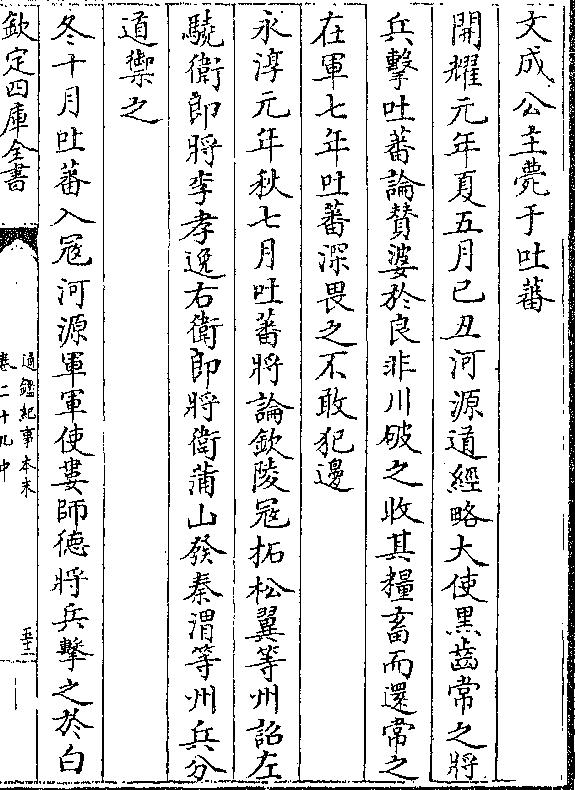 文成公主薨于吐蕃
開耀元年夏五月己丑河源道經略大使黑齒常之將
兵擊吐蕃論贊婆於良非川破之收其糧畜而還常之
在軍七年吐蕃深畏之不敢犯邊
永淳元年秋七月吐蕃將論欽陵寇拓松翼等州詔左
驍衛郎將李孝逸右衛郎將衛蒲山發秦渭等州兵分
道禦之
冬十月吐蕃入寇河源軍軍使婁師德將兵擊之於白
欽定四庫全書
通鑑紀事本末
卷二十九中